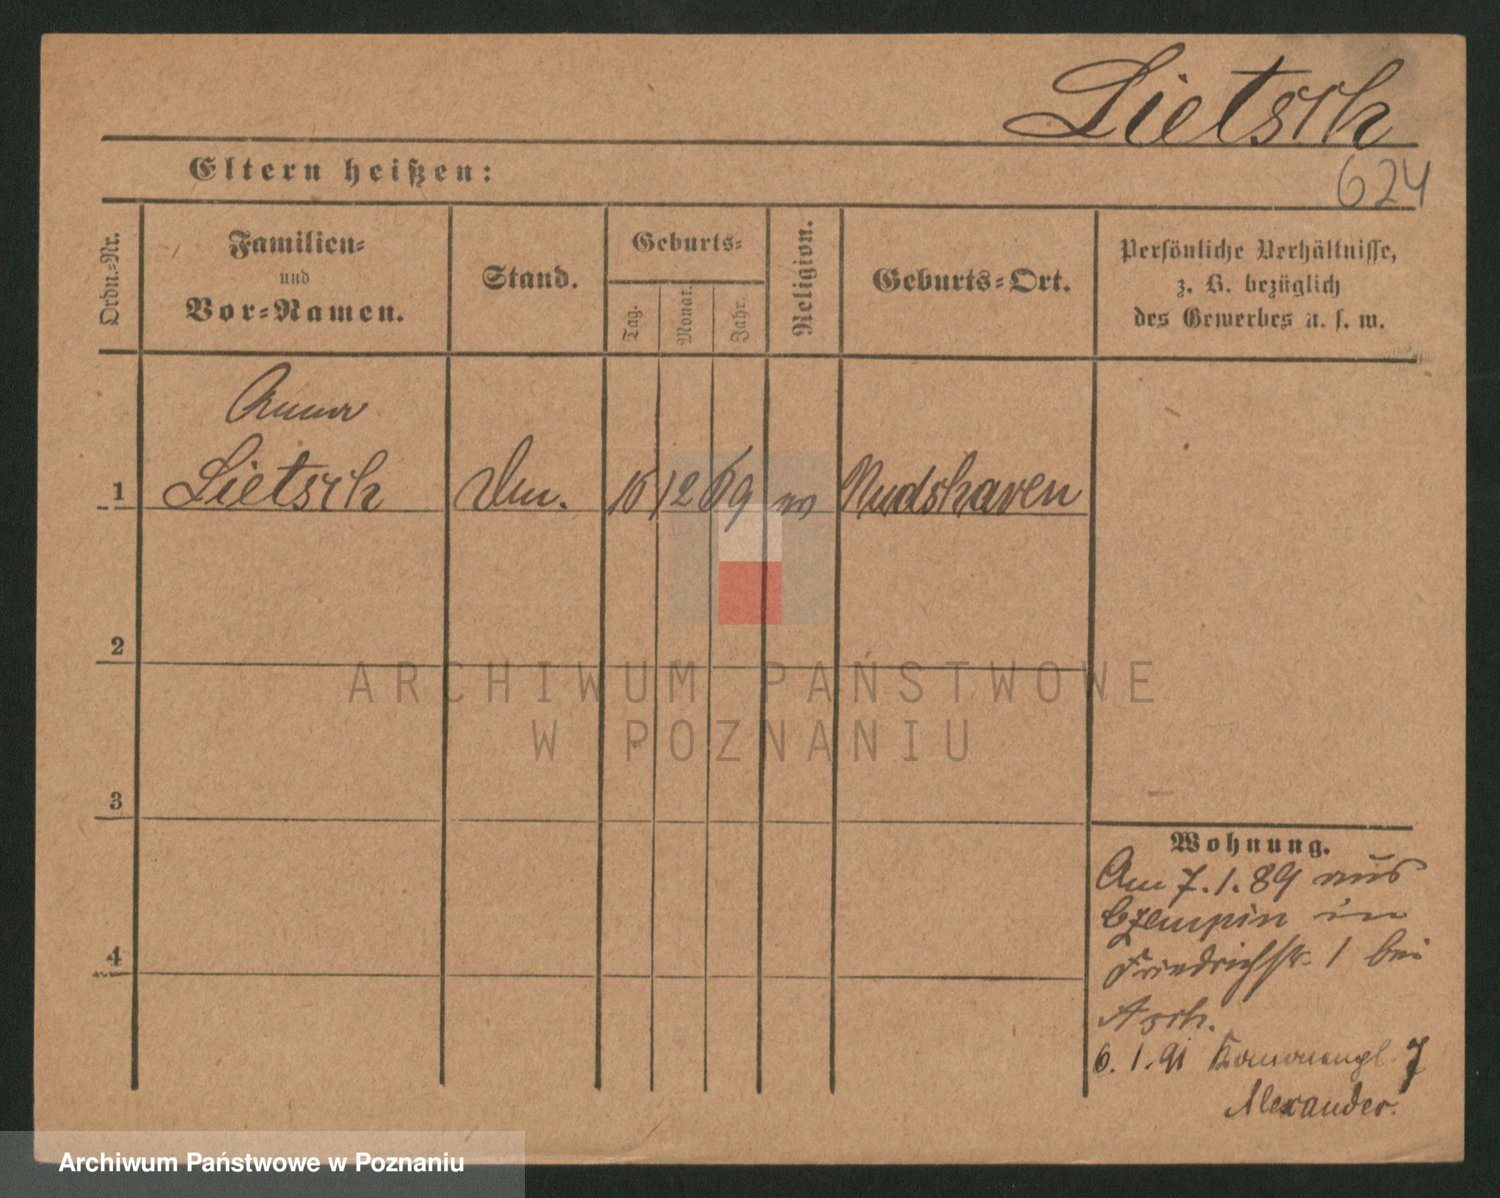 Lietsch
624
Eltern heißen:
Ordn.-Nr.
Familien-
und
Vor-Namen.
Stand.
Geburts-
Tag.
Monat.
Jahr.
Religion.
Geburts-Ort.
Persönliche Verhältnisse,
z. B. bezüglich
des Gewerbes u. s. w.
Anna
1 Lietsch 12 69
2
3
4
ARCHIWUM PAŃSTWOWE
W POZNANIU
Wohnung.
Am 7.1.89 aus
Czempin in
Friedrichstr. 1 bei
Asch.
6.1.91 7
Alexander.
Archiwum Państwowe w Poznaniu